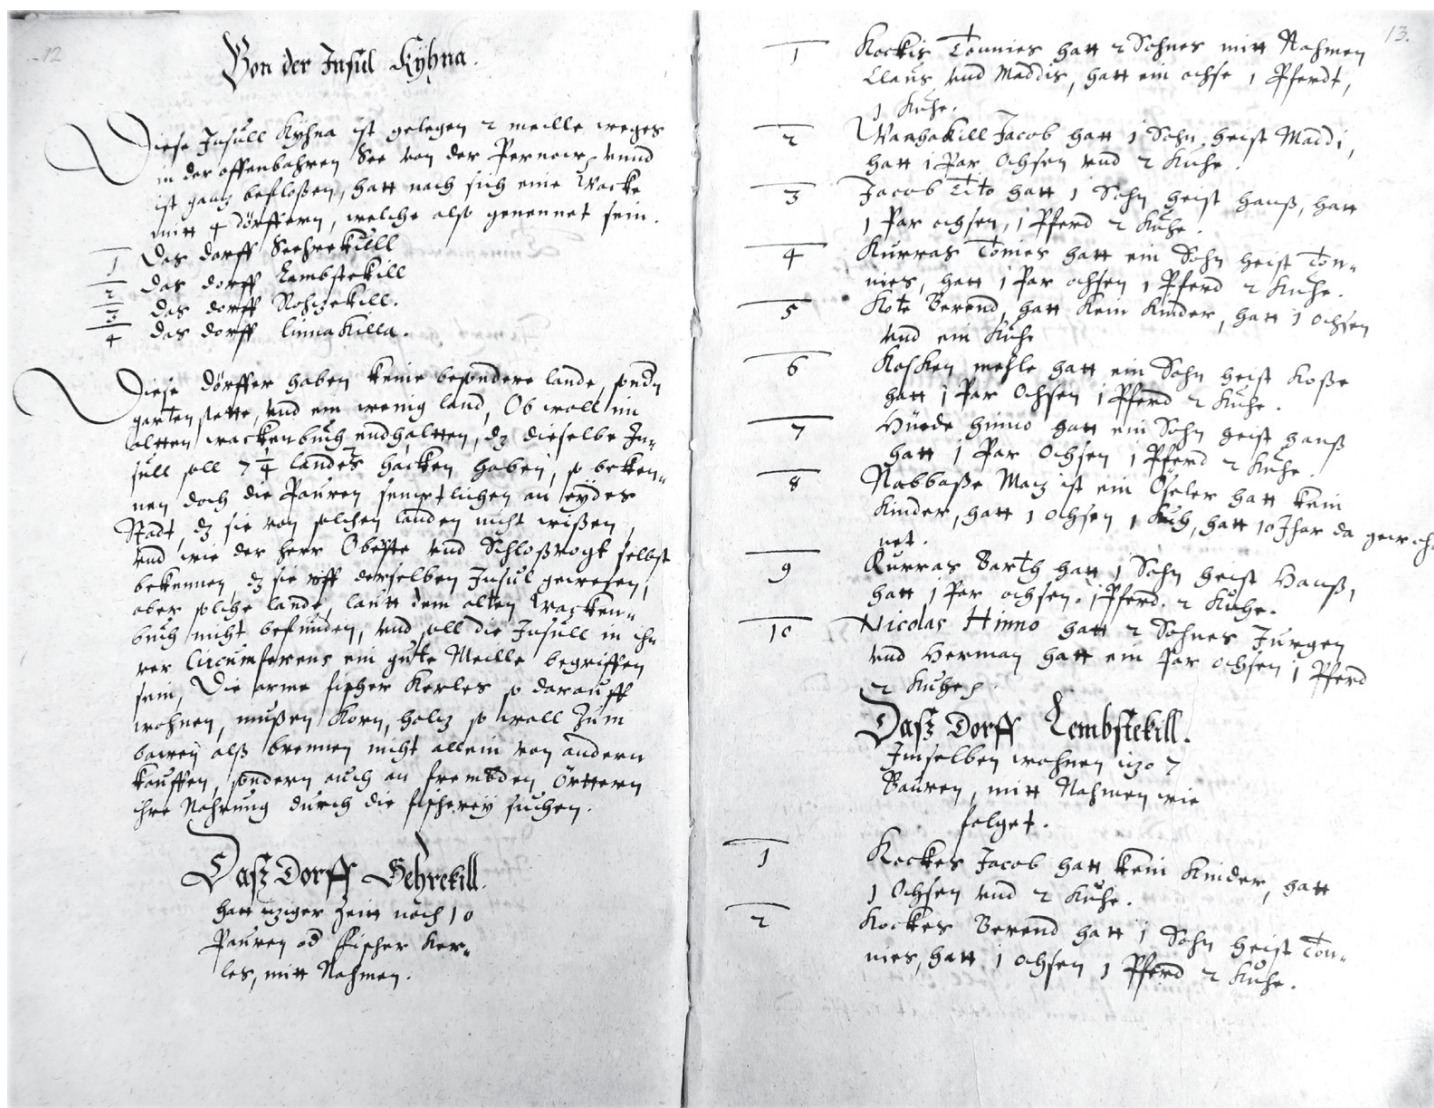 12
Von der Insul Kyhna.
Diese Insull Kyhna ist gelegen 2 meille weges
in der offenbahren See von der Pernow, vnnd
ist gantz beflossen, hatt nach sich eine Wacke
mitt 4 Dörffern, welche also genennet sein.
1 Das dorff Seehrekülll
2 das dorff Lembstekill
3 das dorff Rohtzekill.
4 das dorff linnakilla.
Diese dörffer haben keine besondere lande, sondn
garten stette, vnd ein wenig land, Ob woll im
altten wackenbuch endhaltten, dz dieselbe In-
sull soll 7 1/4 landes hacken haben, so beken-
nen doch die Pauren sempt[lichen] an eydes
Stadt, dz sie von solchen landen nicht wißen,
vnd wie der herr Obeste vnd Schloßvogt selbst
bekennen, dz sie vff derselben Insul gewesen,
aber solche lande, lautt dem alten Wacken-
buch nicht befunden, vnd soll die Insull in ih-
rer circumferens ein gutte Meille begriffen
sein, Die arme fischer Kerles so darauff
wohnen, mußen Korn, holtz so woll zum
bawen alß brennen nicht allein von andern
kauffen, sondern auch an frembden Örttern
ihre Nahrung durch die fischerey suchen.
Dasz Dorff Sehrekill.
hatt itziger Zeitt noch 10
Pauren od fischer Ker-
les, mitt Nahmen.
13.
1 Kockis Tönnies hatt 2 Söhnes mitt Nahmen
Claus vnd Maddis, hatt ein ochse 1 Pferdt,
1 Kuhe.
2 Wanhakill Jacob hatt 1 Sohn, heist Maddi,
hatt 1 Par Ochsen vnd 2 Kuhe.
3 Jacob Tito hatt 1 Sohn heist hanß, hatt
1 Par ochsen, 1 Pferd 2 Kuhe.
4 Kurras Tomes hatt ein Sohn heist Ton-
nies, hatt 1 Par ochsen 1 Pferd 2 Kuhe.
5 Kote Berend, hatt Kein Kinder, hatt 1 ochsen
vnd ein Kuhe
6 Kosken mehle hatt ein Sohn heist Koße
hatt 1 Par Ochsen 1 Pferd 2 Kuhe.
7 Hinno hatt ein Sohn heist hanß
hatt 1 Par Ochsen 1 Pferd 2 Kuhe.
8 Nabbaße Matz ist ein Öseler hatt kein
Kinder, hatt 1 ochsen 1 Kuh, hatt 10 Jhar da gewoh
net.
9 Kurras Barth hatt 1 Sohn heist Hanß,
hatt 1 Par ochsen. 1 Pferd. 2 Kuhe.
10 Nicolas Hinno hatt 2 Söhnes Jurgen
vnd Herman hatt ein Par ochsen 1 Pferd
2 Kuhe.
Dasz Dorff Lembstekill.
Inselben wohnen itzo 7
Bauren, mitt Nahmen wie
folget.
1 Kockes Jacob hatt kein Kinder, hatt
1 Ochsen vnd 2 Kuhe.
2 Kockes Berend hatt 1 Sohn heist Ton-
nies, hatt 1 ochsen 1 Pferd 2 Kuhe.